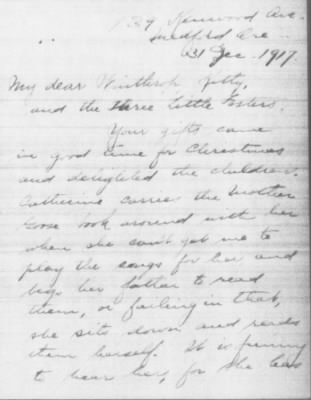 Kenwood Ave.
Medford Ore
31 Dec. 1917.
My dear Winthrop, Kitty,
and the three Little Fosters.
Your gifts came
in good time for Christmas
and delighted the children.
Catherine carries the Mother
Goose book around with her
when she can't get me to
play the songs for her and
begs her father to read
them, or failing in that,
she sits down and reads
them herself. It is funny
to hear her, for she has